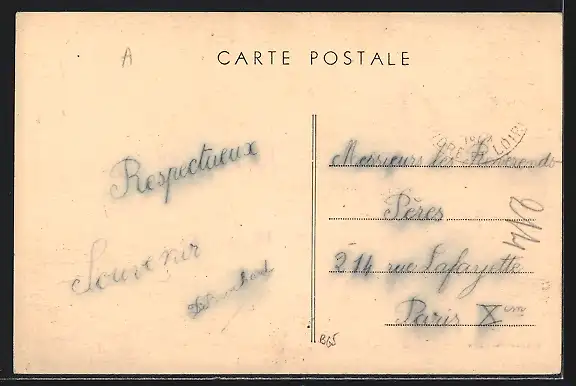 A
CARTE POSTALE
Respectueux
Souvenir
Messieurs les Révérends
Pères
214 rue Lafayette
Paris Xem
214
B65